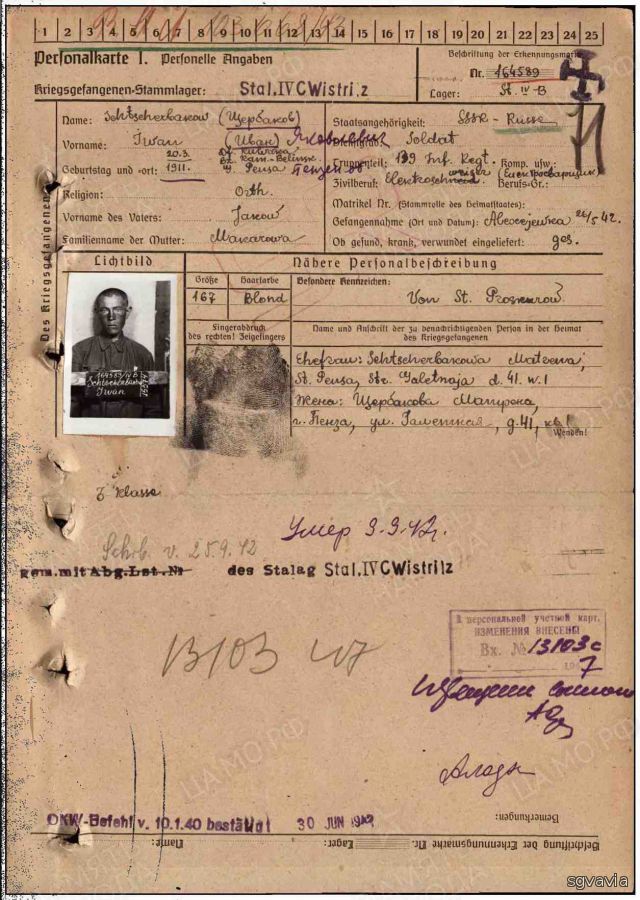 1 2 3 4 5 6 7 8 9 10 11 12 13 14 15 16 17 18 19 20 21 22 23 24 25
Personalkarte I: Personelle Angaben
Kriegsgefangenen-Stammlager: Stal. IV C Wistritz
Beschriftung der Erkennungsmarke
Nr. 164589
Lager: St. IV-B
Des Kriegsgefangenen
Name: Schtscherbakow (Щербаков)
Vorname: Iwan (Иван) Яковлевич
Geburtstag und -ort: 20.3. 1911. Pensa
Religion: Orth.
Vorname des Vaters: Jakow
Familienname der Mutter: Makarowa
Staatsangehörigkeit: SSSR - Russe
Dienstgrad: Soldat
Truppenteil: 139 Inf. Regt. Komp. usw.:
Zivilberuf: (Електросварщик) Berufs-Gr.:
Matrikel Nr. (Stammrolle des Heimatstaates):
Gefangennahme (Ort und Datum): 26/5 42.
Ob gesund, krank, verwundet eingeliefert: ges.
Lichtbild
164589/IV B
Schtscherbakow
Iwan
Nähere Personalbeschreibung
Größe Haarfarbe Besondere Kennzeichen:
167 Blond Von St. Proskurow
Fingerabdruck
des rechten! Zeigefingers
Name und Anschrift der zu benachrichtigenden Person in der Heimat
des Kriegsgefangenen
Ehefrau: Schtscherbakowa Matrena,
St. Pensa, Str. Galetnaja d. 41. w. 1
Жена: Щербакова Матрена,
г. Пенза, ул. Галетная, д. 41, кв. 1
Wenden!
Klasse
Умер 9.9.42г.
Schrb. v. 25.9.42
gem. mit Abg. Lst. Nr des Stalag Stal. IV C Wistritz
13103 47
В персональной учетной карт.
ИЗМЕНЕНИЯ ВНЕСЕНЫ
Вх. № 13103с
194 7
OKW-Befehl v. 10.1.40 bestätigt 30 JUN 1942
Bemerkungen:
Beschriftung der Erkennungsmarke Nr.
Lager:
Name:
ЦА МО РФ
sgvavia